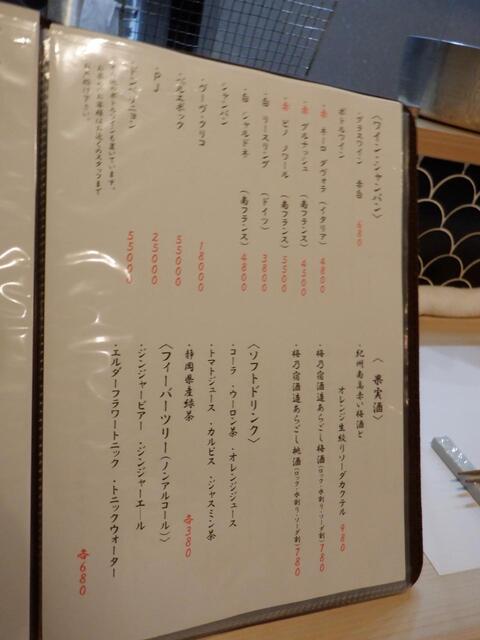 〈ワイン・シャンパン〉
・グラスワイン 赤白 680
ボトルワイン
・赤 ネーロ ダヴォラ (イタリア) 4800
・赤 グルナッシュ (南フランス) 4500
・赤 ピノ ノワール (南フランス) 5500
・白 リースリング (ドイツ) 3800
・白 シャルドネ (南フランス) 4800
シャンパン
・ヴーヴ・クリコ 18000
・ベルエポック 55000
・PJ 25000
・ドンペリニョン 55000
他のボトルワインも置いています。
お求めのお客様はお近くのスタッフまで
お声掛け下さい。
〈果実酒〉
・紀州南高赤い梅酒と
オレンジ生絞りソーダカクテル 980
・梅乃宿酒造あらごし梅酒(ロック・水割り・ソーダ割) 780
・梅乃宿酒造あらごし桃酒(ロック・水割り・ソーダ割) 780
〈ソフトドリンク〉
・コーラ ・ウーロン茶 ・オレンジジュース
・トマトジュース ・カルピス ・ジャスミン茶
・静岡県産緑茶 各380
〈フィーバーツリー(ノンアルコール)〉
・ジンジャービアー ・ジンジャーエール
・エルダーフラワートニック ・トニックウォーター
各680